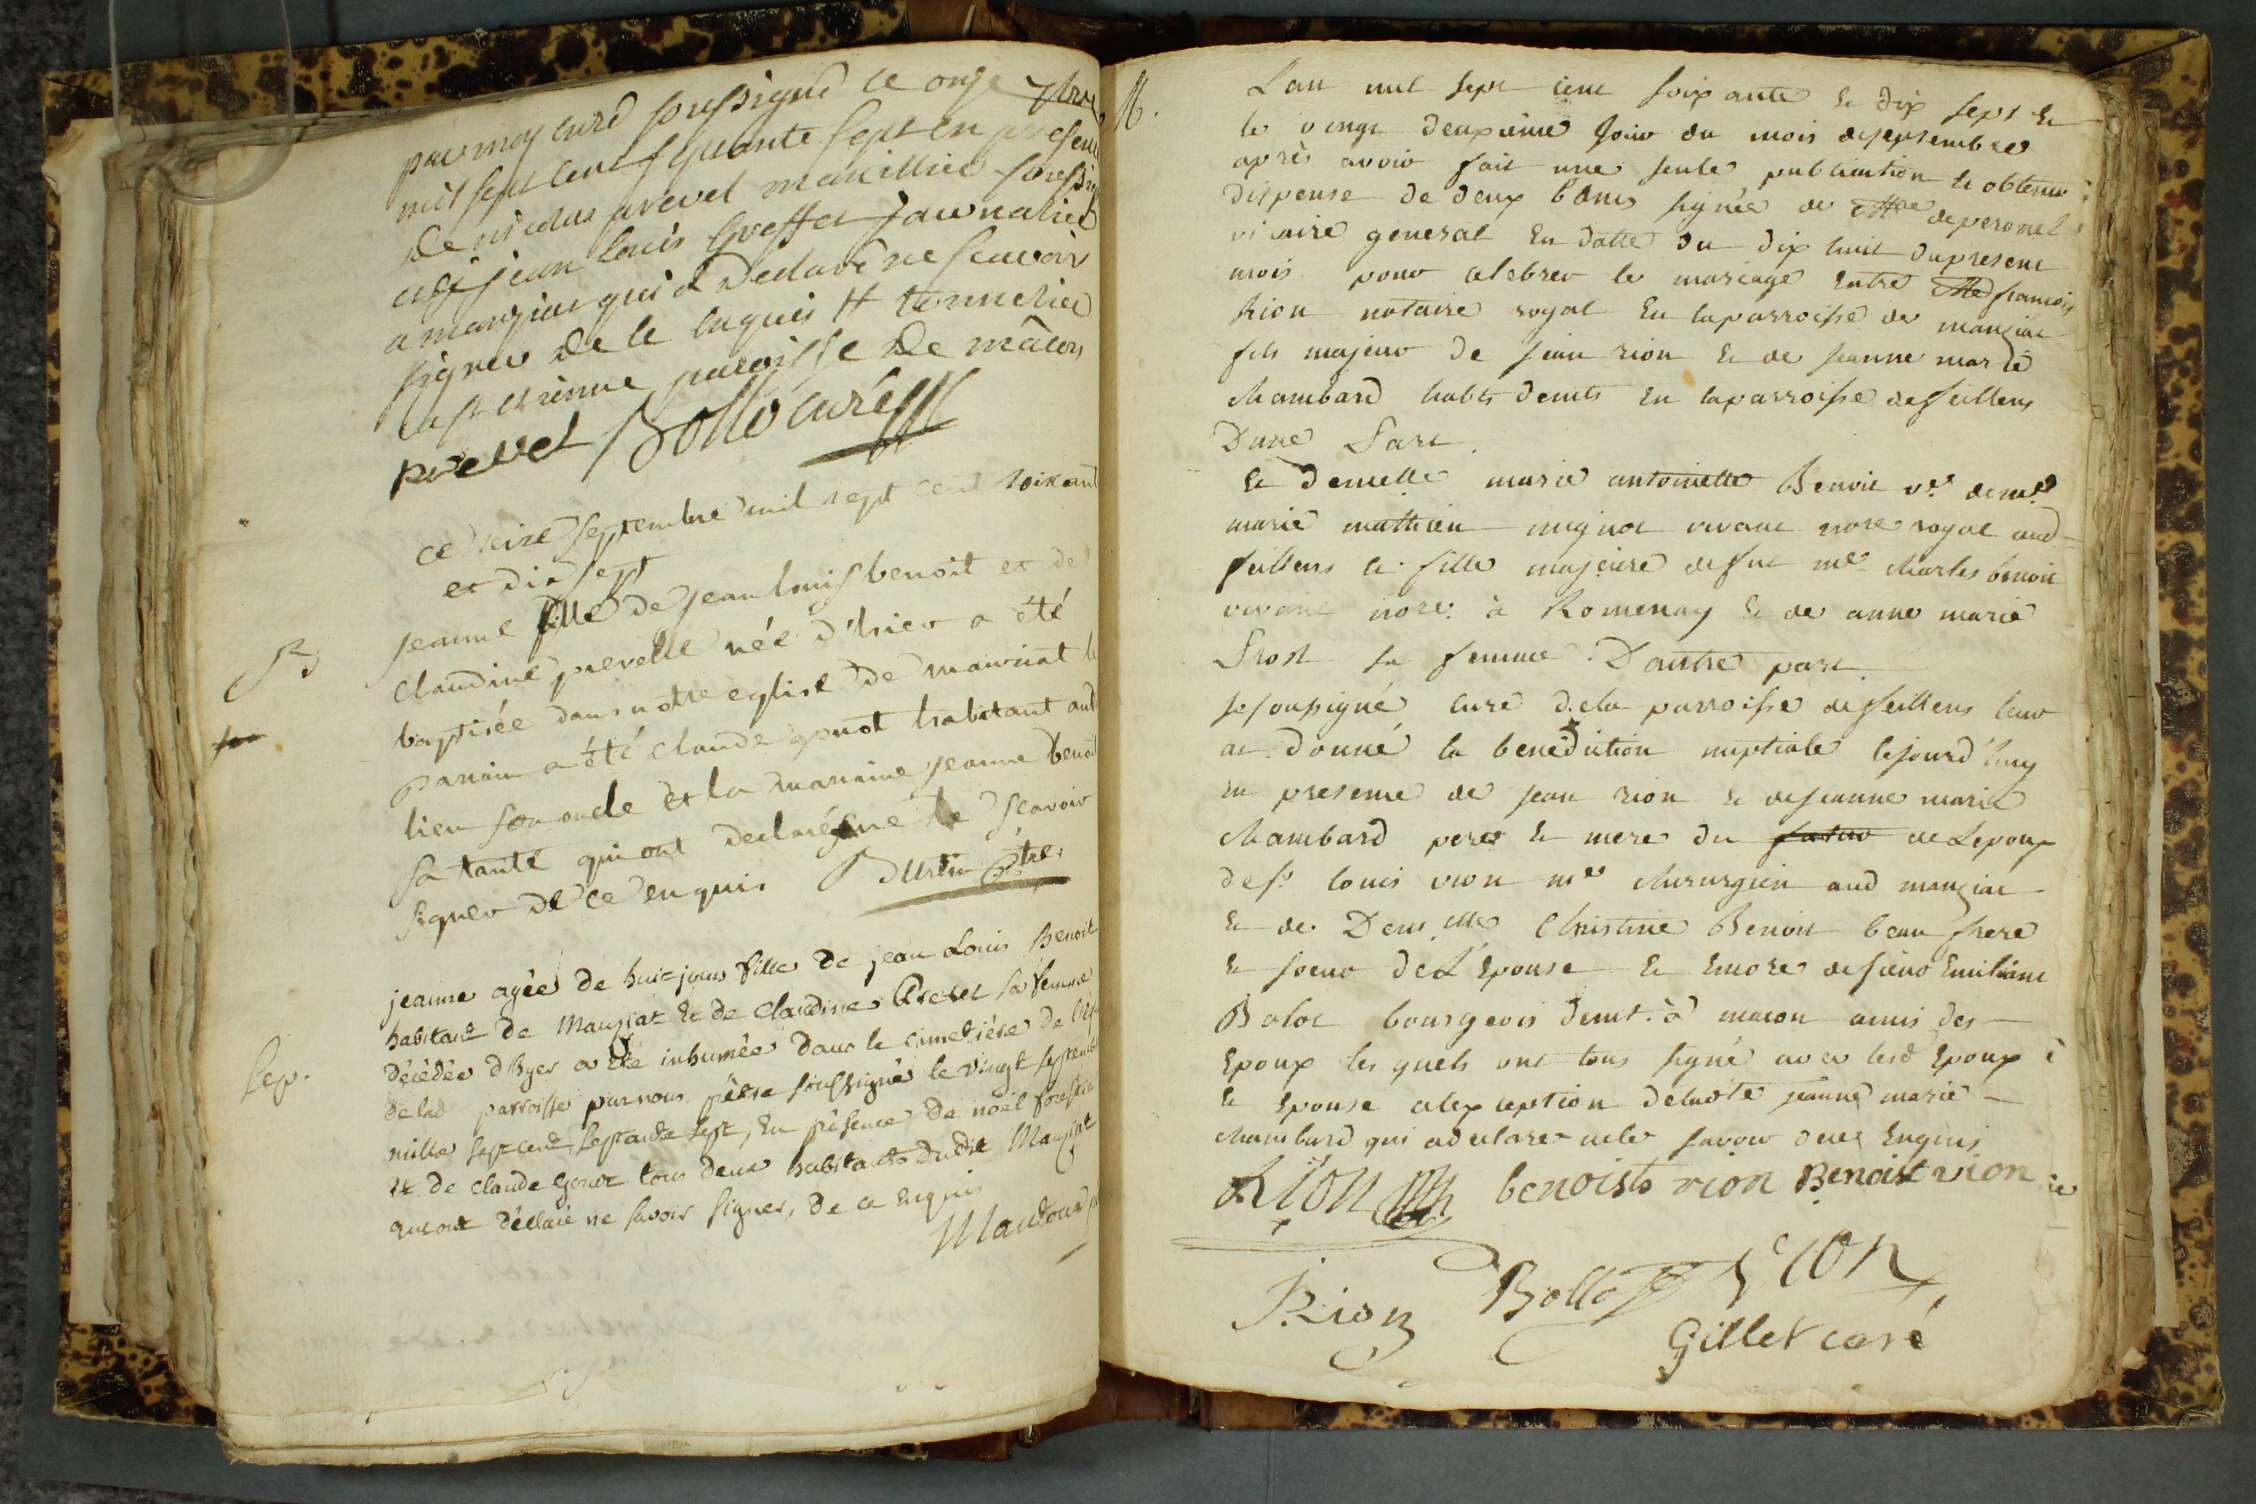 par moy curé soussigné ce onze 7bre
mil sept cent septante sept en presence
de nicolas prevel marillier soussigné
et jean louis Greffet journalier
a manziat qui a declaré ne scavoir
signer de ce enquis # tonnelier
en st etienne paroisse de mâcon
prevel Bollo curé
B
ce seize septembre mil sept cent soixante
et dix sept
jeanne fille de jean louis benoit et de
claudine prevelle née d'hier a été
baptisée dans notre eglise de manziat le
parain a été claude gonot habitant aud
lieu son oncle et la maraine jeanne benoit
sa tante qui ont declaré ne scavoir
signer de ce enquis Burtin Ptre
Sep.
jeanne agée de huit jours fille de jean Louis Benoit
habitant de Manziat & de Claudine Prevel sa femme
décédée d'hyer a été inhumée dans le cimetière de
de lad parroisse par nous prêtre soussigné le vingt septembre
mille sept cent septante sept, En présence de noël
& de claude Gonot tous deux habitants dudit Manziat
qui ont déclaré ne savoir signer, de ce enquis
M.
Lan mil sept cent soixante & dix sept &
le vingt deuxième jour du mois de septembre
après avoir fait une seule publication & obtenu
dispense de deux bans signée de Mre de peronet
vicaire general En datte du dix huit du present
mois pour celebrer le mariage Entre Me françois
Rion notaire royal En la parroisse de manziat
fils majeur de jean rion & de jeanne marie
Chambard habts demts En la parroisse de feillens
Dune Part.
Et demelle marie antoinette Benoit ve de me
marie mathieu mignot vivant nore royal aud
feillens & fille majeure de fut me charles benoit
vivant nore à Romenay & de anne marie
Prost sa femme Dautre part.
je soussigné curé de la parroisse de feillens leur
ai donné la benediction nuptiale cejourd'huy
en presence de jean rion & de jeanne marie
Chambard pere & mere du futur de Lepoux
de sr louis vion me chirurgien aud manziat
& de Demlle Christine Benoit beau frere
& soeur de L'Epouse & Encore de sieur Emiliane
Bolot bourgeois demt. à macon amis des
Epoux lesquels ont tous signé avec lesd Epoux
& Epouse a lexception de ladte jeanne marie
chambard qui a declaré ne le savoir de ce Enquis
Rion benoist rion Benoist vion
J. Rion Bollo rion
Gillet curé